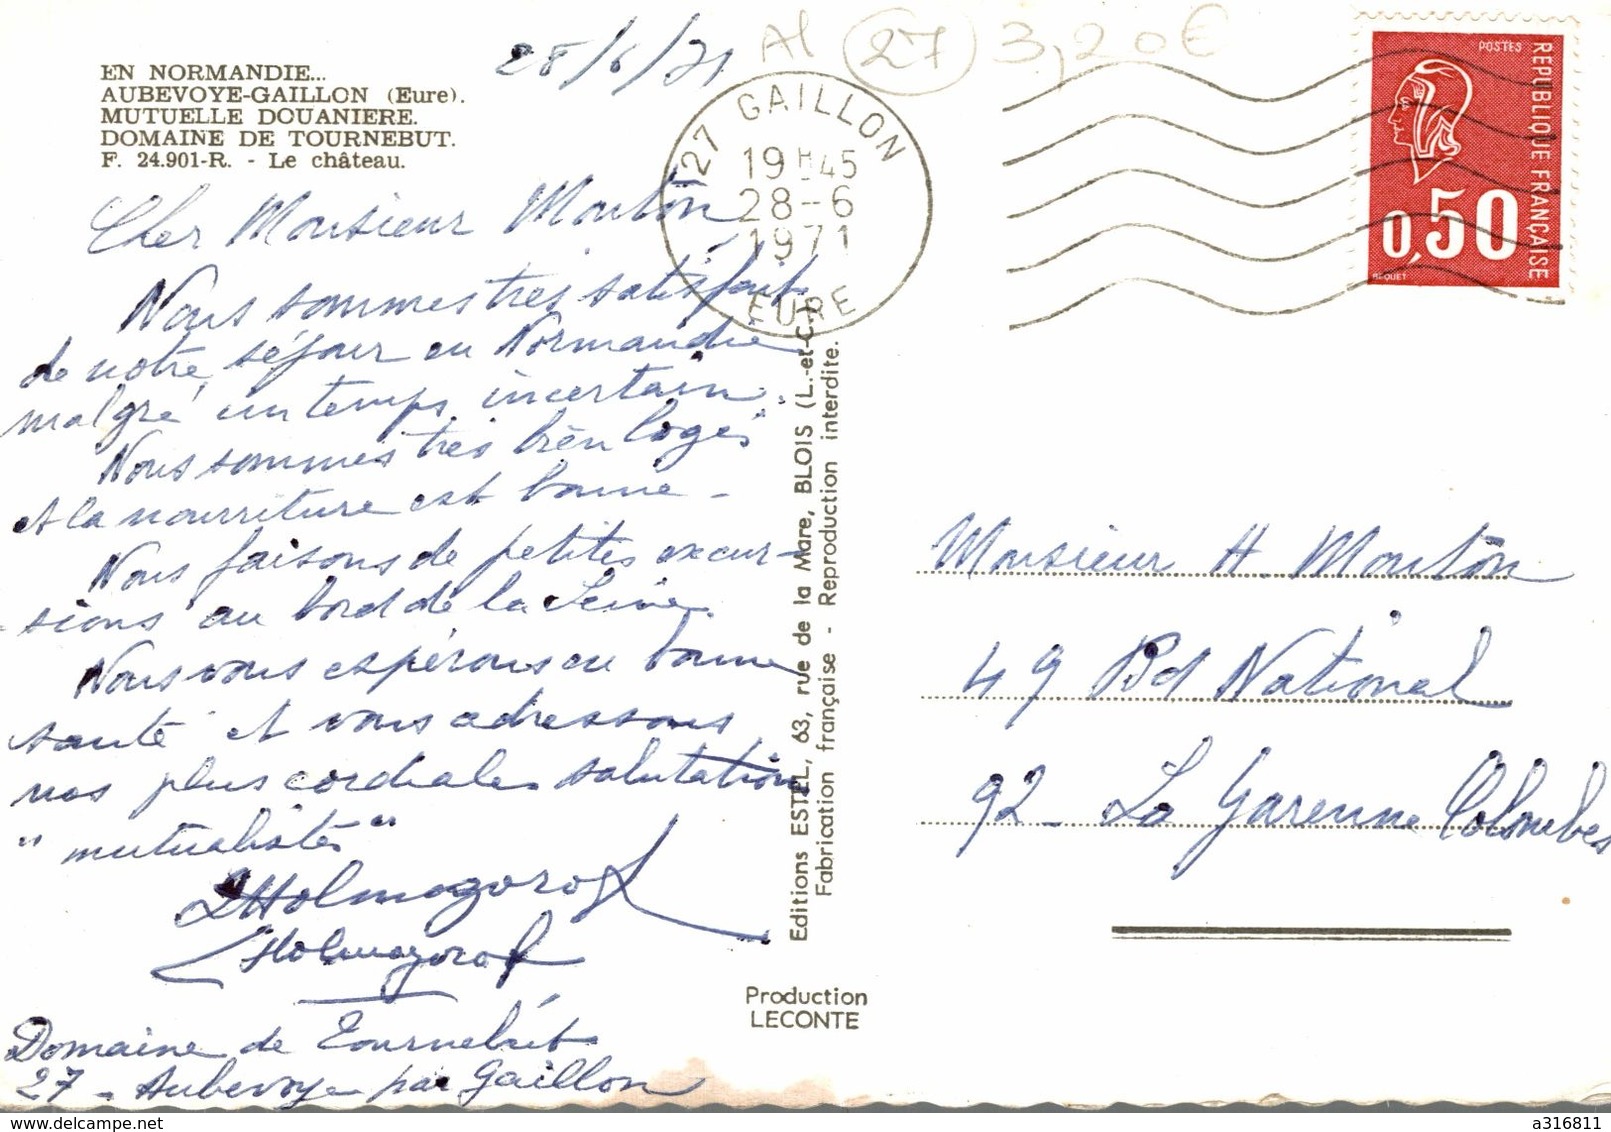 EN NORMANDIE...
AUBEVOYE-GAILLON (Eure).
MUTUELLE DOUANIERE.
DOMAINE DE TOURNEBUT.
F. 24.901-R. - Le château.
28/6/71
Al 27 3,20€
27 GAILLON
19H45
28-6
1971
EURE
POSTES
REPUBLIQUE FRANÇAISE
0,50
BEQUET
Cher Monsieur Mouton
Nous sommes très satisfaits
de notre séjour en Normandie
malgré un temps incertain.
Nous sommes très bien logés
et la nourriture est bonne -
Nous faisons de petites excur-
sions au bord de la Seine.
Nous vous espérons en bonne
santé et vous adressons
nos plus cordiales salutations
"mutualistes"
Holmogorof
Holmogorof
Domaine de Tournebut
27 - Aubevoye par Gaillon
Editions ESTEL, 63, rue de la Mare, BLOIS (L.-et-C.)
Fabrication française - Reproduction interdite.
Production
LECONTE
Monsieur H. Mouton
49 Bd National
92 - La Garenne Colombes
www.delcampe.net
a316811